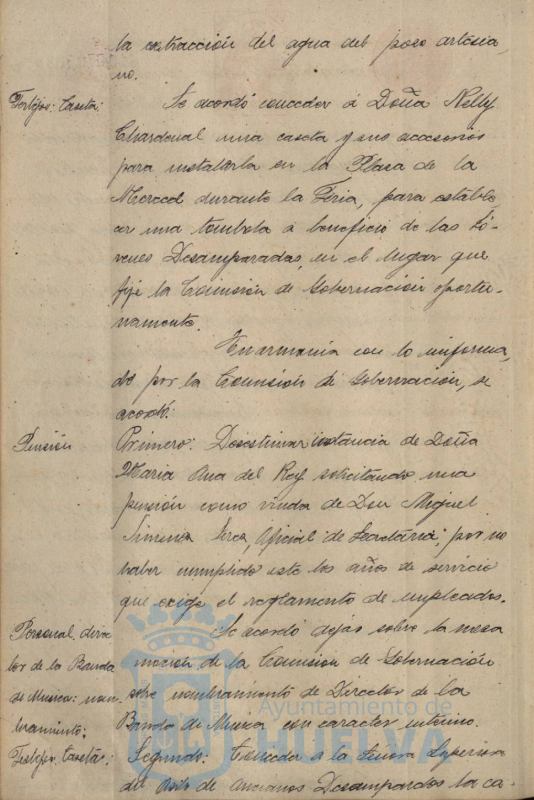 la extracción del agua del pozo artesia-
no.
Festejos: Caseta:
Se acordó conceder á Doña Nelly
Chardenal una caseta y sus accesorios
para instalarla en la Plaza de la
Merced durante la Feria, para estable-
cer una tombola á beneficio de las Jó-
venes Desamparadas, en el lugar que
fije la Comisión de Gobernación oportu-
namente.
En armonia con lo informa-
do por la Comisión de Gobernación, se
acordó:
Pensión
Primero: Desestimar instancia de Doña
Maria Ana del Rey solicitando una
pensión como viuda de Don Miguel
Oficial de Secretaria, por no
haber cumplido este los años de servicio
que exige el reglamento de empleados.
Personal. direc-
tor de la Banda
de Musica: nom-
bramiento:
Se acordó dejar sobre la mesa
moción de la Comision de Gobernación
sobre nombramiento de Director de la
Banda de Musica con caracter interino.
Festejos. Casetas:
Segundo: Conceder a la Señora Superiora
del Asilo de Ancianos Desamparados la ca-
Ayuntamiento de
HUELVA